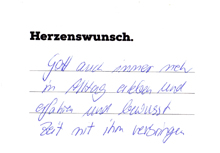 Herzenswunsch.
Gott auch immer mehr
in Alltag erleben und
erfahren und bewusst
Zeit mit ihm verbringen